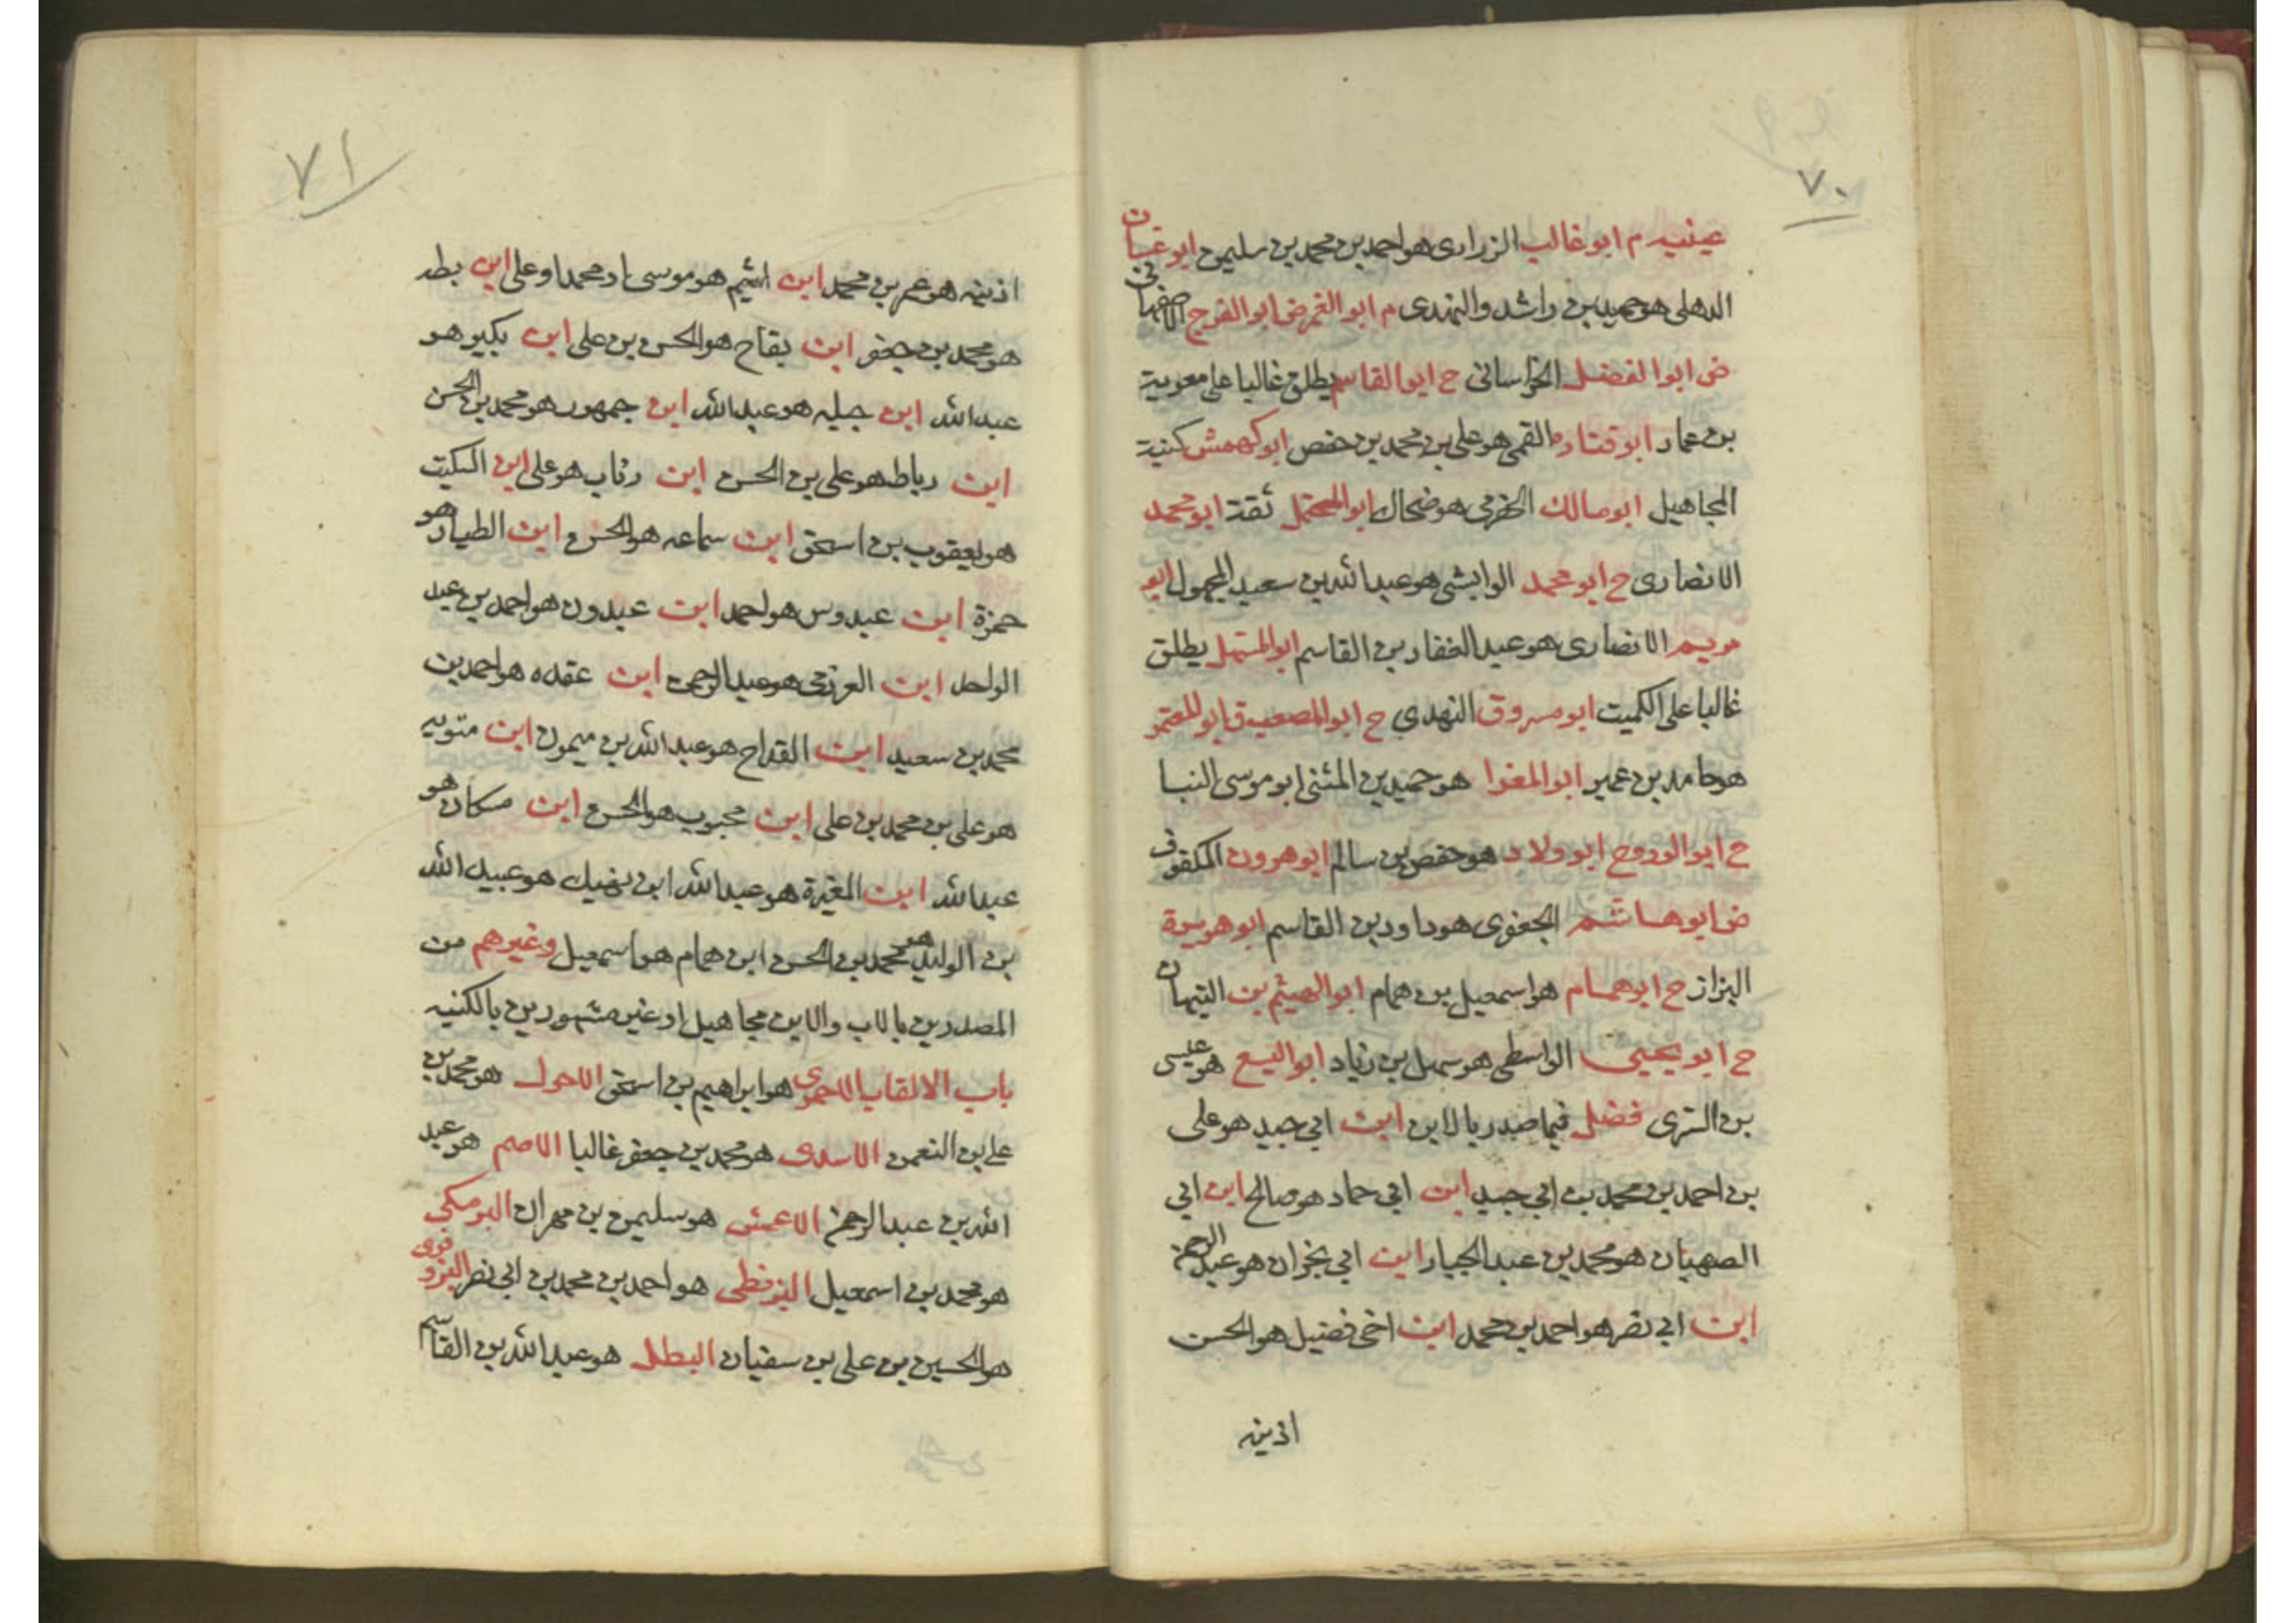 ٧٠
عيينه م ابو غالب الزراری هو احمد بن محمد بن سليمن ابو غسان
الدهلی هو حميد بن راشد والنهدی م ابو الغمر ض ابو الفرج الاصفهانی
ض ابو الفضل الخراسانی ح ابو القاسم يطلق غالبا علی معوية
بن عمار ابو قتاده القمی هو علی بن محمد بن حفص ابو كهمش كنية
المجاهيل ابو مالك الحضرمی هو ضحاك ابو المحتمل ثقة ابو محمد
الانصاری ح ابو محمد الوابشی هو عبد الله بن سعيد المجهول ابو
مريم الانصاری هو عبد الغفار بن القاسم ابو المستهل يطلق
غالبا علی الكميت ابو مسروق النهدی ح ابو المصعب ق ابو المعتمر
هو حامد بن عمير ابو المغرا هو حميد بن المثنی ابو موسی البنا
ح ابو الورد ح ابو ولاد هو حفص بن سالم ابو هرون المكفوف
ض ابو هاشم الجعفری هو داود بن القاسم ابو هريرة
البزاز ح ابو همام هو اسمعيل بن همام ابو الهيثم بن التيهان
ح ابو يحيی الواسطی هو سهيل بن زياد ابو اليسع هو عيسی
بن السری فضل فيما صدر بالابن ابن ابی جيد هو علی
بن احمد بن محمد بن ابی جيد ابن ابی حماد هو صالح ابن ابی
الصهبان هو محمد بن عبد الجبار ابن ابی نجران هو عبد الرحمن
ابن ابی نصر هو احمد بن محمد ابن اخی فضيل هو الحسن
اذينه
٧١
اذينه هو عمر بن محمد ابن اشيم هو موسی او محمد او علی ابن بطه
هو محمد بن جعفر ابن بقاح هو الحسن بن علی ابن بكير هو
عبد الله ابن جبله هو عبد الله ابن جمهور هو محمد بن الحسن
ابن رباط هو علی بن الحسن ابن رئاب هو علی ابن السكيت
هو يعقوب بن اسحق ابن سماعه هو الحسن ابن الطيار هو
حمزة ابن عبدوس هو احمد ابن عبدون هو احمد بن عبد
الواحد ابن العرزمی هو عبد الرحمن ابن عقده هو احمد بن
محمد بن سعيد ابن القداح هو عبد الله بن ميمون ابن متويه
هو علی بن محمد بن علی ابن محبوب هو الحسن ابن مسكان هو
عبد الله ابن المغيرة هو عبد الله ابن نهيك هو عبيد الله
بن الوليد هو محمد بن الحسن ابن همام هو اسمعيل وغيرهم من
المصدرين بالاب والابن مجاهيل او غير مشهورين بالكنيه
باب الالقاب الاحمری هو ابراهيم بن اسحق الاحول هو محمد بن
علی بن النعمن الاسدی هو محمد بن جعفر غالبا الاصم هو عبد
الله بن عبد الرحمن الاعمش هو سليمن بن مهران البرمكی
هو محمد بن اسمعيل البزنطی هو احمد بن محمد بن ابی نصر البزوفری
هو الحسين بن علی بن سفيان البطل هو عبد الله بن القاسم